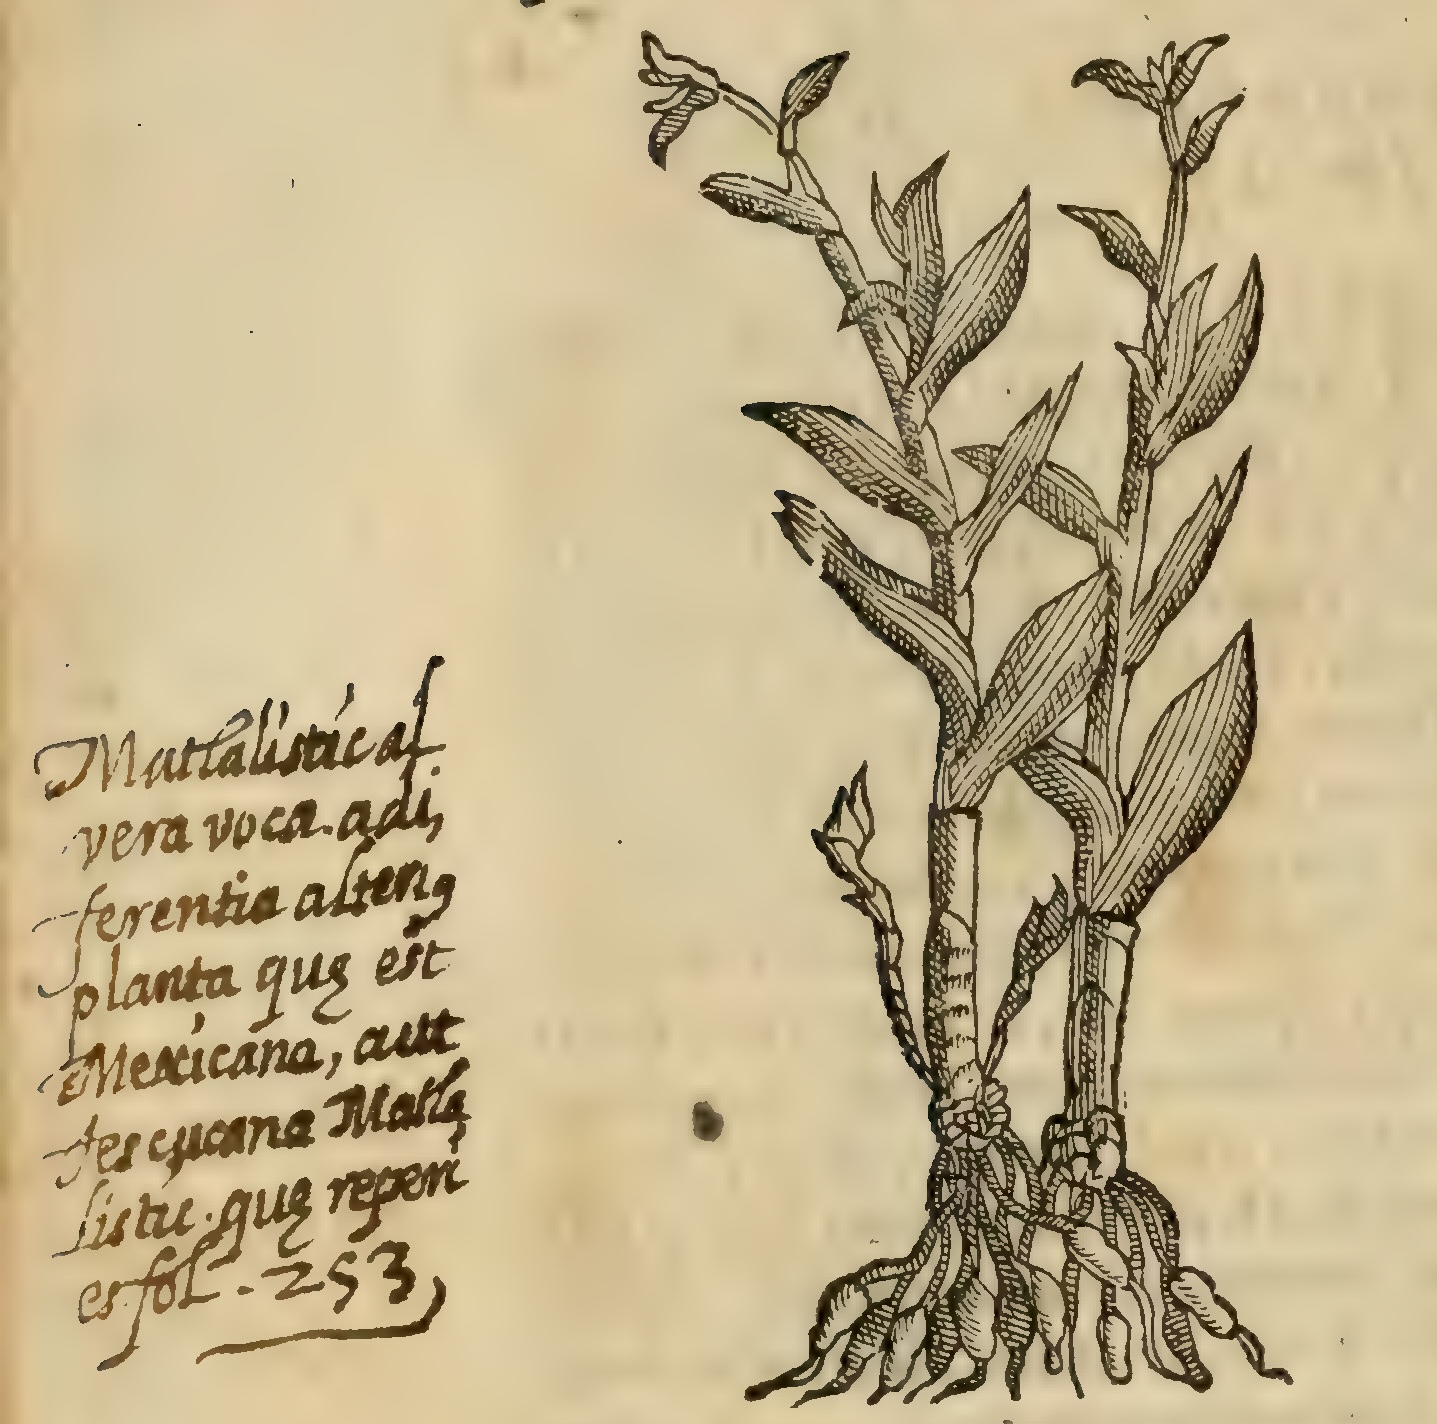 Matlalistic al
vera voca. a di,
ferentia alterı9
planta quę est
Mexicana, aut
tescucana Matla
listic. quę reperi
es fol. 253,